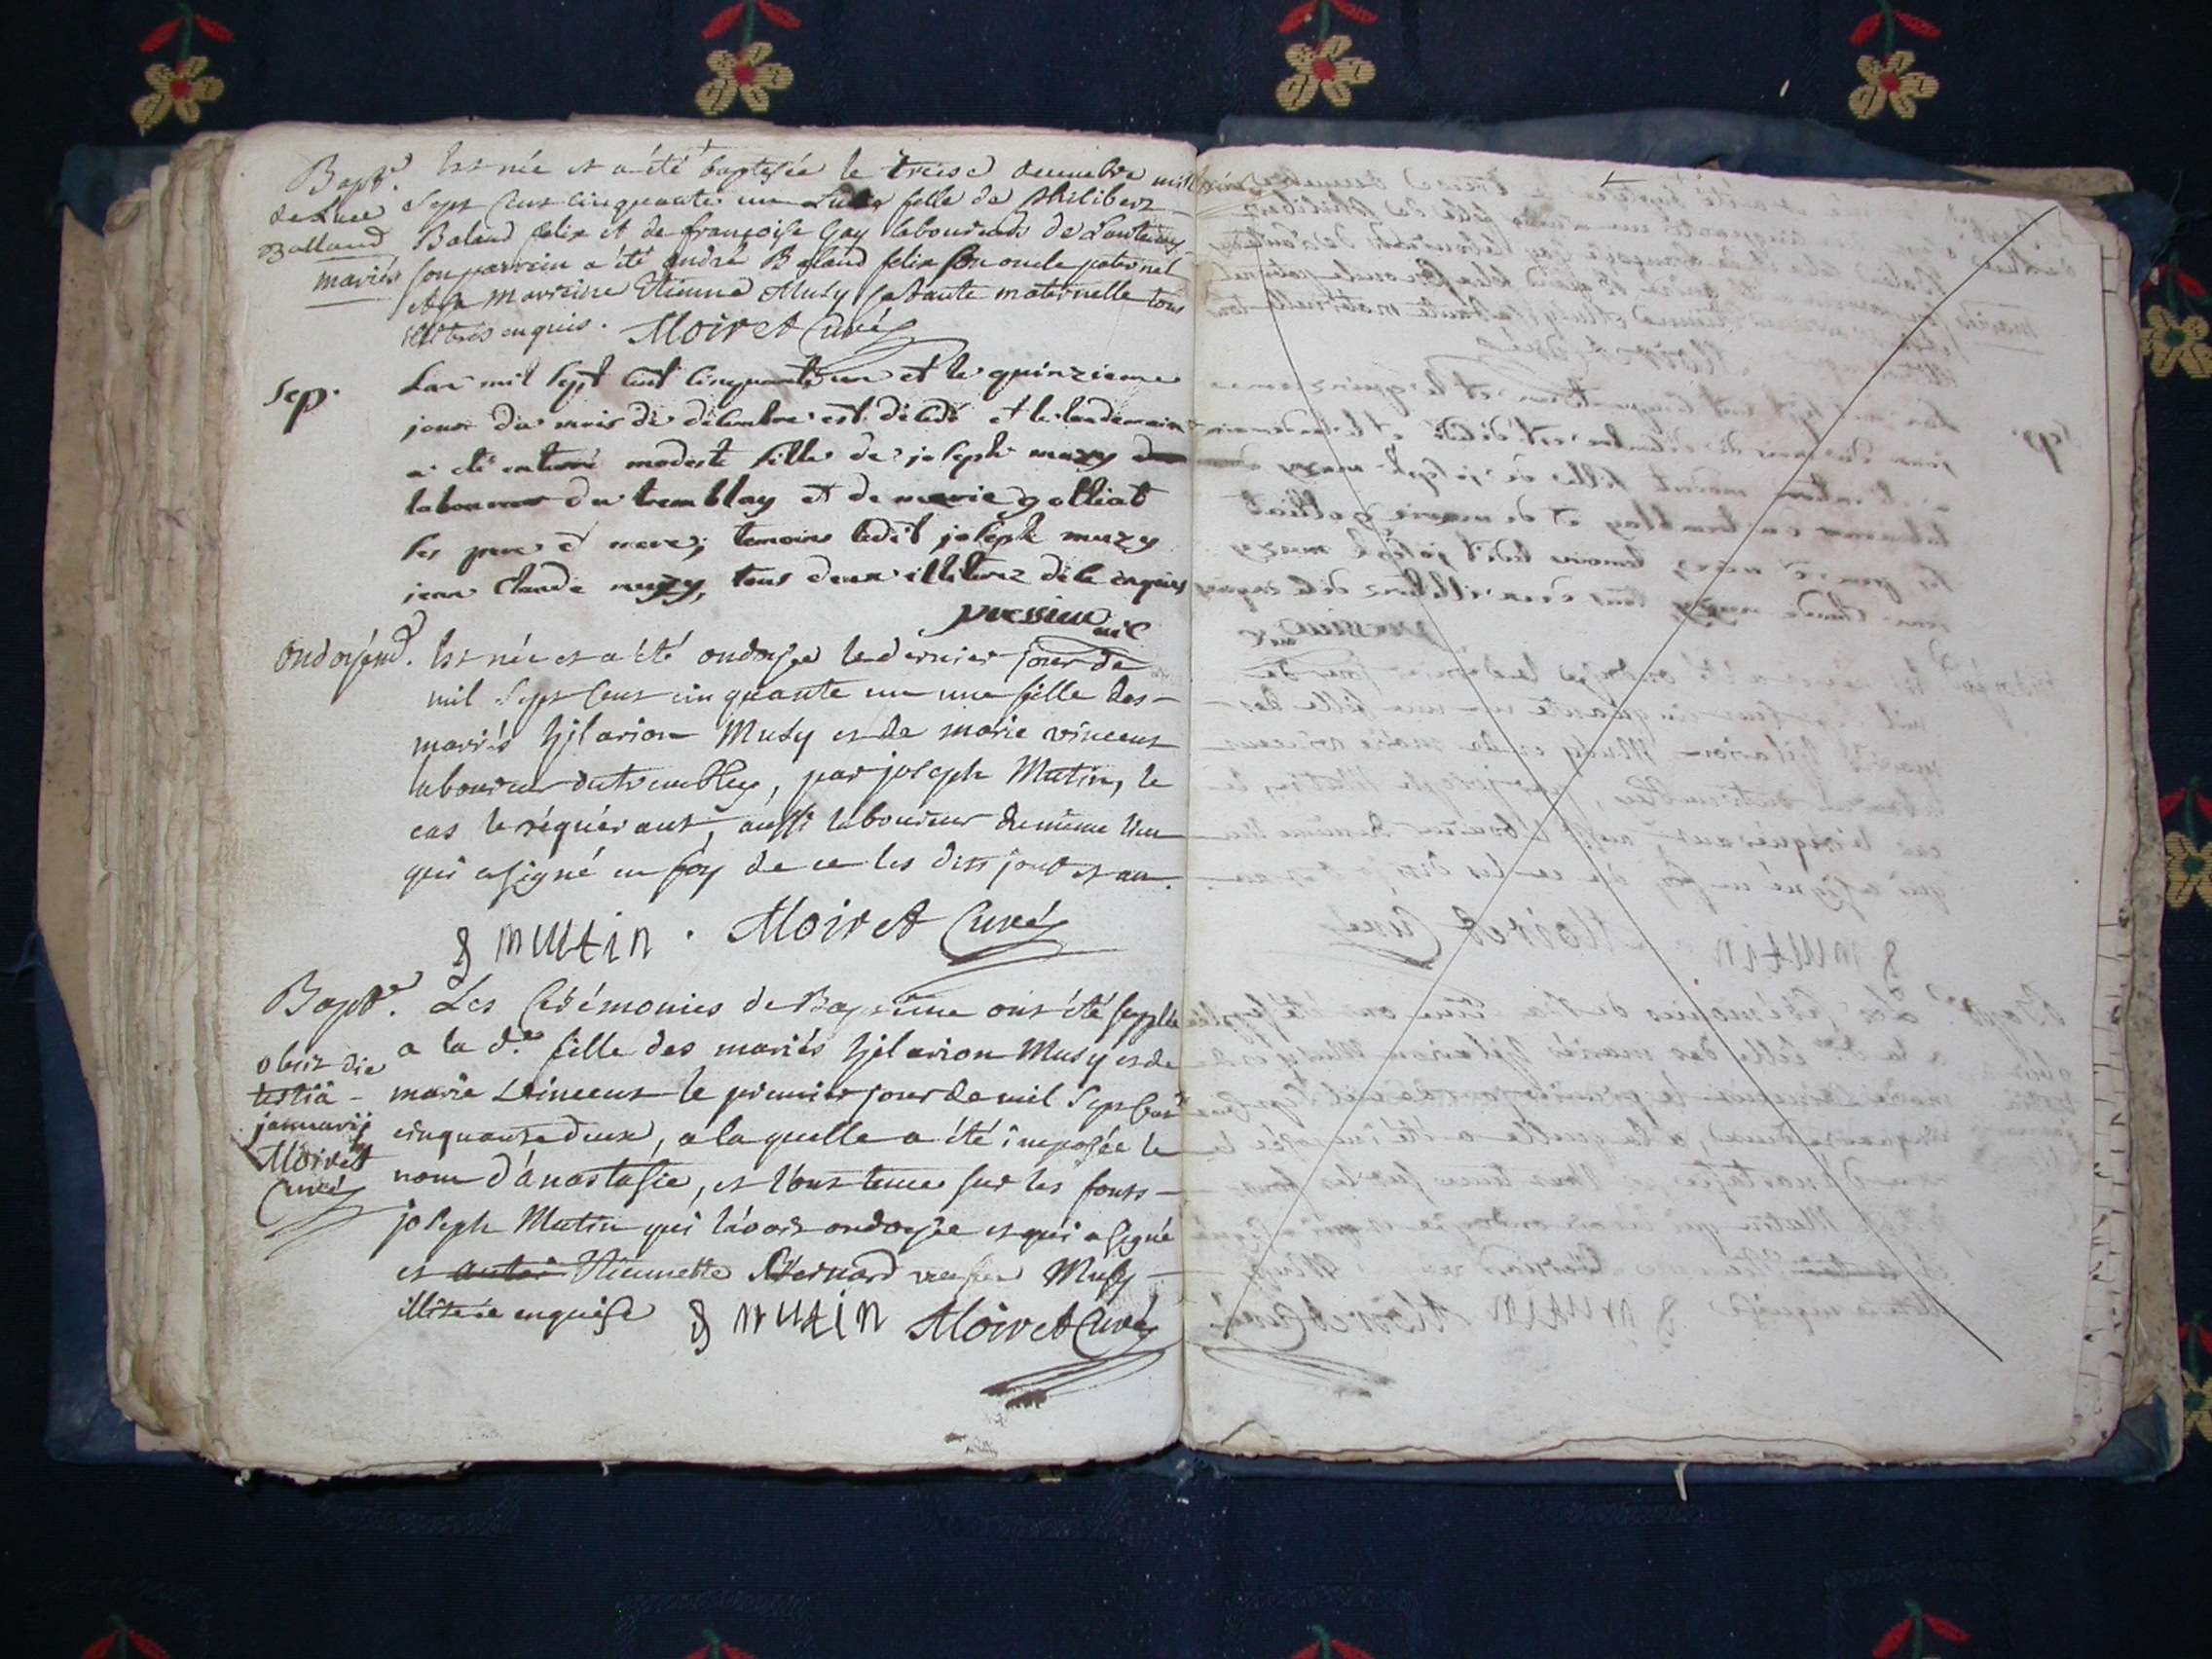 Bapt.e Est née et a été baptisée le treise decembre mil
de Luce Sept Cent cinquante un Luce fille de Philibert
Balland Baland felix et de françoise Gay laboureurs de
mariés Son parrein a été André Baland felix son oncle paternel
et sa marreine Etienne Musy sa tante maternelle tous
illitérés enquis. Moiret Curé
Sep. Lan mil Sept cent Cinquante un et le quinzieme
jour du mois de décembre est décédé et le lendemain
a été enterré modeste fille de joseph muzy
laboureur du tremblay et de marie golliat
ses pere et mere; temoins ledit joseph muzy
jean Claude muzy, tous deux illiterez de ce enquis
pressieu vic
Ondoyem.t Est née et a été ondoyée le dernier jour de
mil Sept Cent cinquante un une fille des
mariés hjlarion Musy et de marie vincent
laboureur du tremblay, par joseph Mutin, le
cas le réquérant, aussi laboureur du même lieu
qui a signé en foy de ce les dits jour et an.
J mutin . Moiret Curé
Bapt.e Les Cérémonies de Bapteme ont été supplée
a la d.e fille des mariés hjlarion Musy et de
obiit die marie Vincent le premier jour de mil Sept Cent
tertia januarij cinquante deux, a laquelle a été imposée le
Moiret nom d'anastasie, et l'ont tenue sur les fonts
Curé joseph Mutin qui l'avoit ondoyée et qui a signé
et Etiennette Bernard Musy
illiterée enquise J mutin Moiret Curé